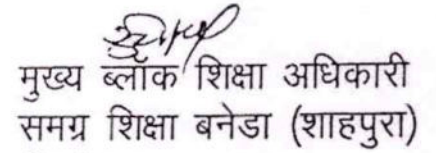 मुख्य ब्लाक शिक्षा अधिकारी
समग्र शिक्षा बनेडा (शाहपुरा)